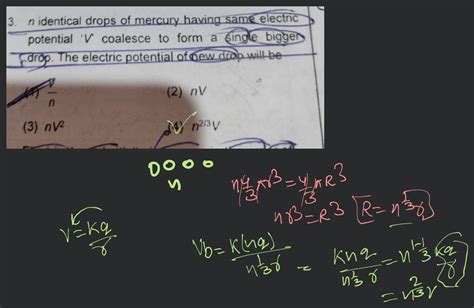 3. n identical drops of mercury having same electric
potential 'V' coalesce to form a single bigger
drop. The electric potential of new drop will be
(1) V/n
(2) nV
(3) nV²
(4) n^2/3 V
n
n 4/3 πr³ = 4/3 πR³
nr³ = R³ [R = n^1/3 r]
V = kq/r
Vb = K(nq)/n^1/3 r = Knq/n^1/3 r = n^1-1/3 (kq/r)
= n^2/3 V